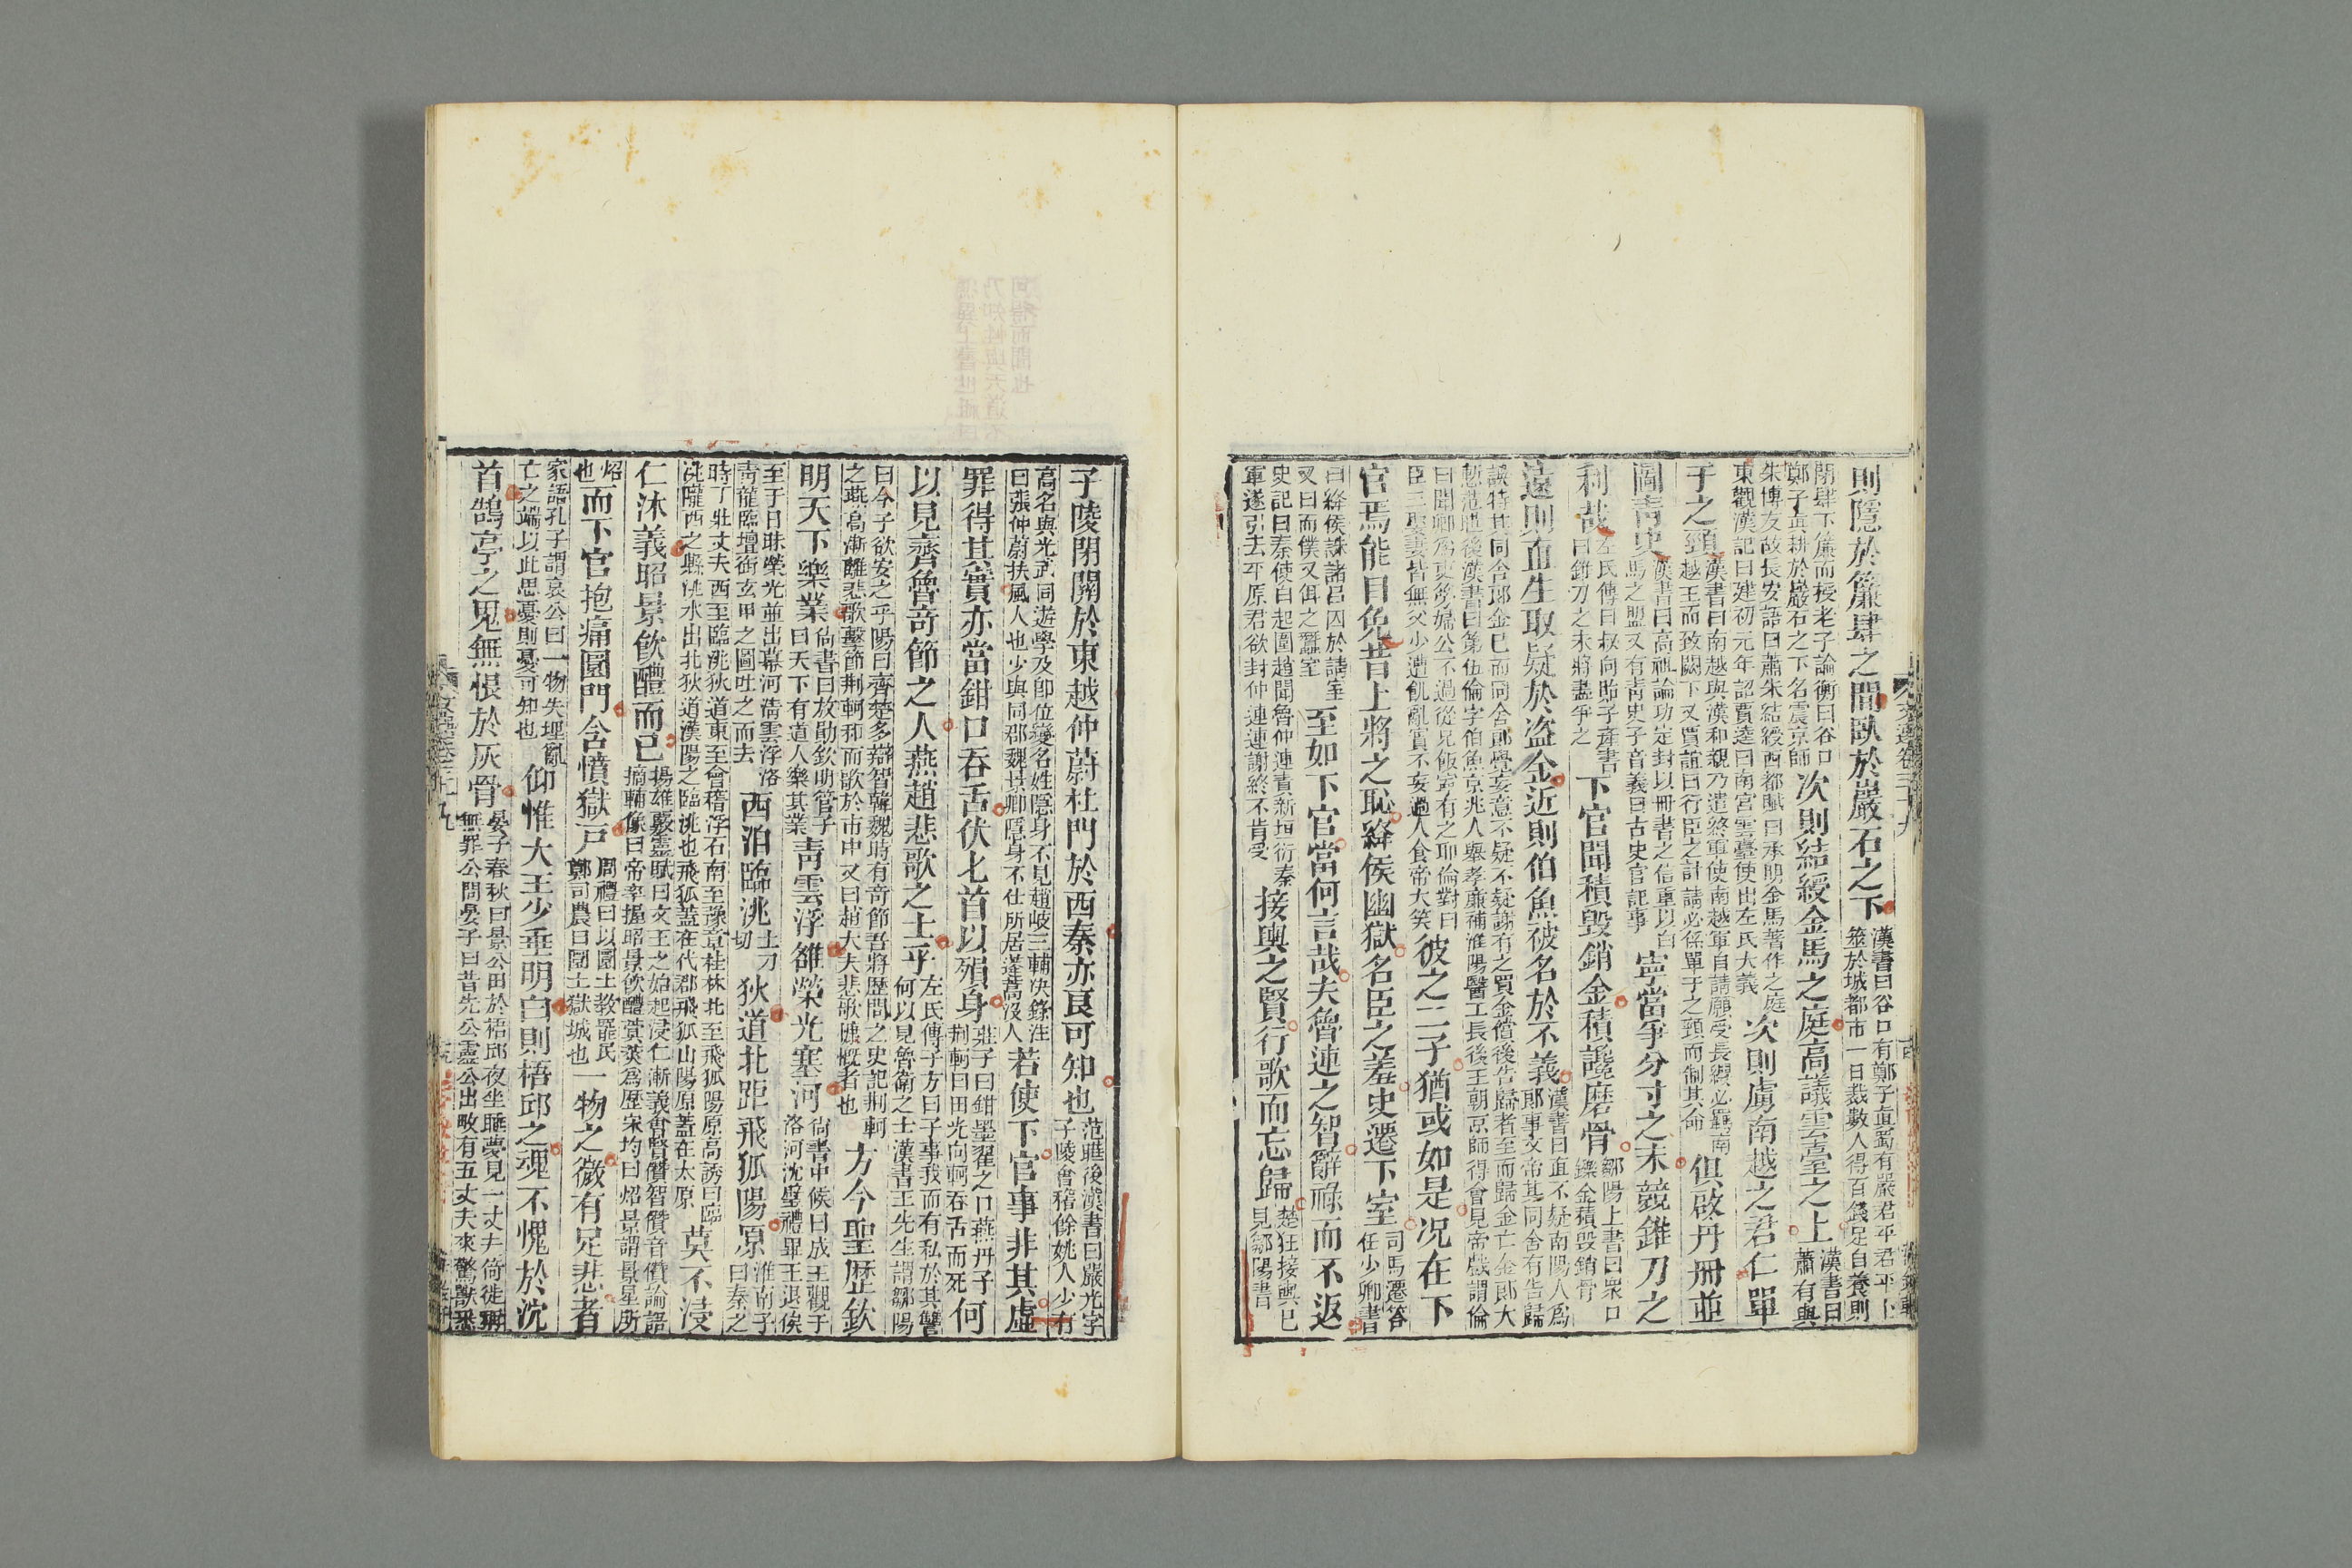 則隱於簾肆之間臥於巖石之下漢書曰谷口有鄭子真蜀有嚴君平君平卜
筮於城都市一日裁數人得百錢足自養則
閉肆下簾而授老子論衡曰谷口
鄭子真耕於巖石之下名震京師次則結綬金馬之庭高議雲臺之上漢書曰
蕭有與
朱博友故長安語曰蕭朱結綬西都賦曰承明金馬著作之庭
東觀漢記曰建初元年詔賈逵曰南宮雲臺使出左氏大義次則虜南越之君單
于之頸漢書曰南越與漢和親乃遣終軍使南越軍自請願受長纓必羈南
越王而致闕下又賈誼曰行臣之計請必係單于之頸而制其命俱啟丹冊並
圖青史漢書曰高祖論功定封以冊書之信重以白
馬之盟又有青史子音義曰古史官記事寧當爭分寸之末競錐刀之
利哉左氏傳曰叔向貽子產書
曰錐刀之末將盡爭之下官聞積毀銷金積讒磨骨鄒陽上書曰衆口
鑠金積毀銷骨
遠則直生取疑於盜金近則伯魚被名於不義漢書曰直不疑南陽人爲
郎事文帝其同舍有告歸
誤持其同舍郎金已而同舍郎覺妄意不疑不疑謝有之買金償後告歸者至而歸金亡金郎大
慙范曄後漢書曰第伍倫字伯魚京兆人舉孝廉補淮陽醫工長後王朝京師得會見帝戲謂倫
曰聞卿爲吏篣婦公不過從兄飯寧有之耶倫對曰
臣三娶妻皆無父少遭飢亂實不妄過人食帝大笑彼之二子猶或如是况在下
官焉能自免昔上將之恥絳侯幽獄名臣之羞史遷下室司馬遷答
任少卿書
曰絳侯誅諸呂囚於請室
又曰而僕又佴之蠶室至如下官當何言哉夫魯連之智辭祿而不返
史記曰秦使白起圍趙聞魯仲連責新垣衍秦
軍遂引去平原君欲封仲連連謝終不肯受接輿之賢行歌而忘歸楚狂接輿已
見鄒陽書
子陵閉關於東越仲蔚杜門於西秦亦良可知也范曄後漢書曰嚴光字
子陵會稽餘姚人少有
高名與光武同遊學及即位變名姓隱身不見趙岐三輔决錄注
曰張仲蔚扶風人也少與同郡魏景卿隱身不仕所居蓬蒿沒人若使下官事非其虛
罪得其實亦當鉗口吞舌伏匕首以殞身莊子曰鉗墨翟之口燕丹子
荆軻曰田光向軻吞舌而死何
以見齊魯奇節之人燕趙悲歌之士乎左氏傳子方曰子事我而有私於其讐
何以見魯衛之士漢書王先生謂鄒陽
曰今子欲安之乎陽曰齊楚多辯智韓魏時有奇節吾將歷問之史記荆軻
之燕高漸離悲歌擊節荆軻和而歌於市中又曰趙大夫悲歌慷慨者也方今聖歷欽
明天下樂業尙書曰放勛欽明管子
曰天下有道人樂其業青雲浮雒榮光塞河尙書中候曰成王觀于
洛河沈璧禮畢王退俟
至于日昧榮光並出幕河青雲浮洛
靑龍臨壇銜玄甲之圖吐之而去西洎臨洮土刀
切狄道北距飛狐陽原淮南子
曰秦之
時丁壯丈夫西至臨洮狄道東至會稽浮石南至豫章桂林北至飛狐陽原高誘曰臨
洮隴西之縣洮水出北狄道漢陽之臨洮也飛狐蓋在代郡飛狐山陽原蓋在太原莫不浸
仁沐義昭景飮醴而已揚雄覈靈賦曰文王之始起浸仁漸義會賢儹智儹音儹論語
摘輔像曰帝率握昭景飮醴賞莢爲歷宋均曰炤景謂景星所
炤
也而下官抱痛圜門含憤獄戶周禮曰以圜土教罷民
鄭司農曰圜土獄城也一物之微有足悲者
家語孔子謂哀公曰一物失理亂
亡之端以此思憂則憂可知也仰惟大王少垂明白則梧邱之魂不愧於沈
首鵠亭之鬼無恨於灰骨晏子春秋曰景公田於梧邱夜坐睡夢見一丈夫倚徙稱
無罪公問晏子曰昔先公靈公出畋有五丈夫來驚獸悉